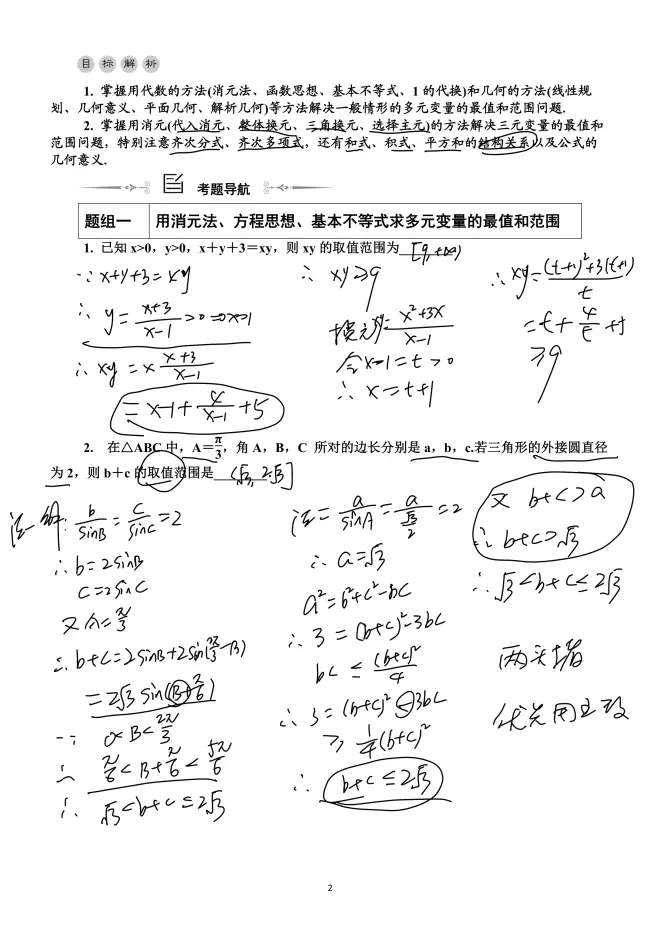 目标解析
1. 掌握用代数的方法(消元法、函数思想、基本不等式、1 的代换)和几何的方法(线性规
划、几何意义、平面几何、解析几何)等方法解决一般情形的多元变量的最值和范围问题.
2. 掌握用消元(代入消元、整体换元、三角换元、选择主元)的方法解决三元变量的最值和
范围问题，特别注意齐次分式、齐次多项式，还有和式、积式、平方和的结构关系以及公式的
几何意义.
考题导航
题组一 用消元法、方程思想、基本不等式求多元变量的最值和范围
1. 已知 x>0，y>0，x＋y＋3＝xy，则 xy 的取值范围为 [9,+∞)
∵ x+y+3=xy
∴ y = (x+3)/(x-1) >0 ⇒x>1
∴ xy = x (x+3)/(x-1)
= x-1+ 4/(x-1) +5
∴ xy≥9
换元 xy= (x²+3x)/(x-1)
令x-1=t>0
∴ x=t+1
∴ xy= ((t+1)²+3(t+1))/t
=t+ 4/t +5
≥9
2. 在△ABC 中，A＝π/3，角 A，B，C 所对的边长分别是 a，b，c.若三角形的外接圆直径
为 2，则 b＋c 的取值范围是 (√3, 2√3]
法一 解: b/sinB = c/sinC =2
∴ b=2sinB
c=2sinC
又 A= π/3
∴ b+c=2sinB+2sin(2π/3-B)
=2√3 sin(B+π/6)
∵ 0<B<2π/3
∴ π/6<B+π/6<5π/6
∴ √3<b+c≤2√3
法二 a/sinA = a/(√3/2) =2
∴ a=√3
a²=b²+c²-bc
∴ 3=(b+c)²-3bc
bc ≤ (b+c)²/4
∴ 3=(b+c)²-3bc
≥ 1/4(b+c)²
∴ b+c≤2√3
又 b+c>a
∴ b+c>√3
∴ √3<b+c≤2√3
两头堵
2